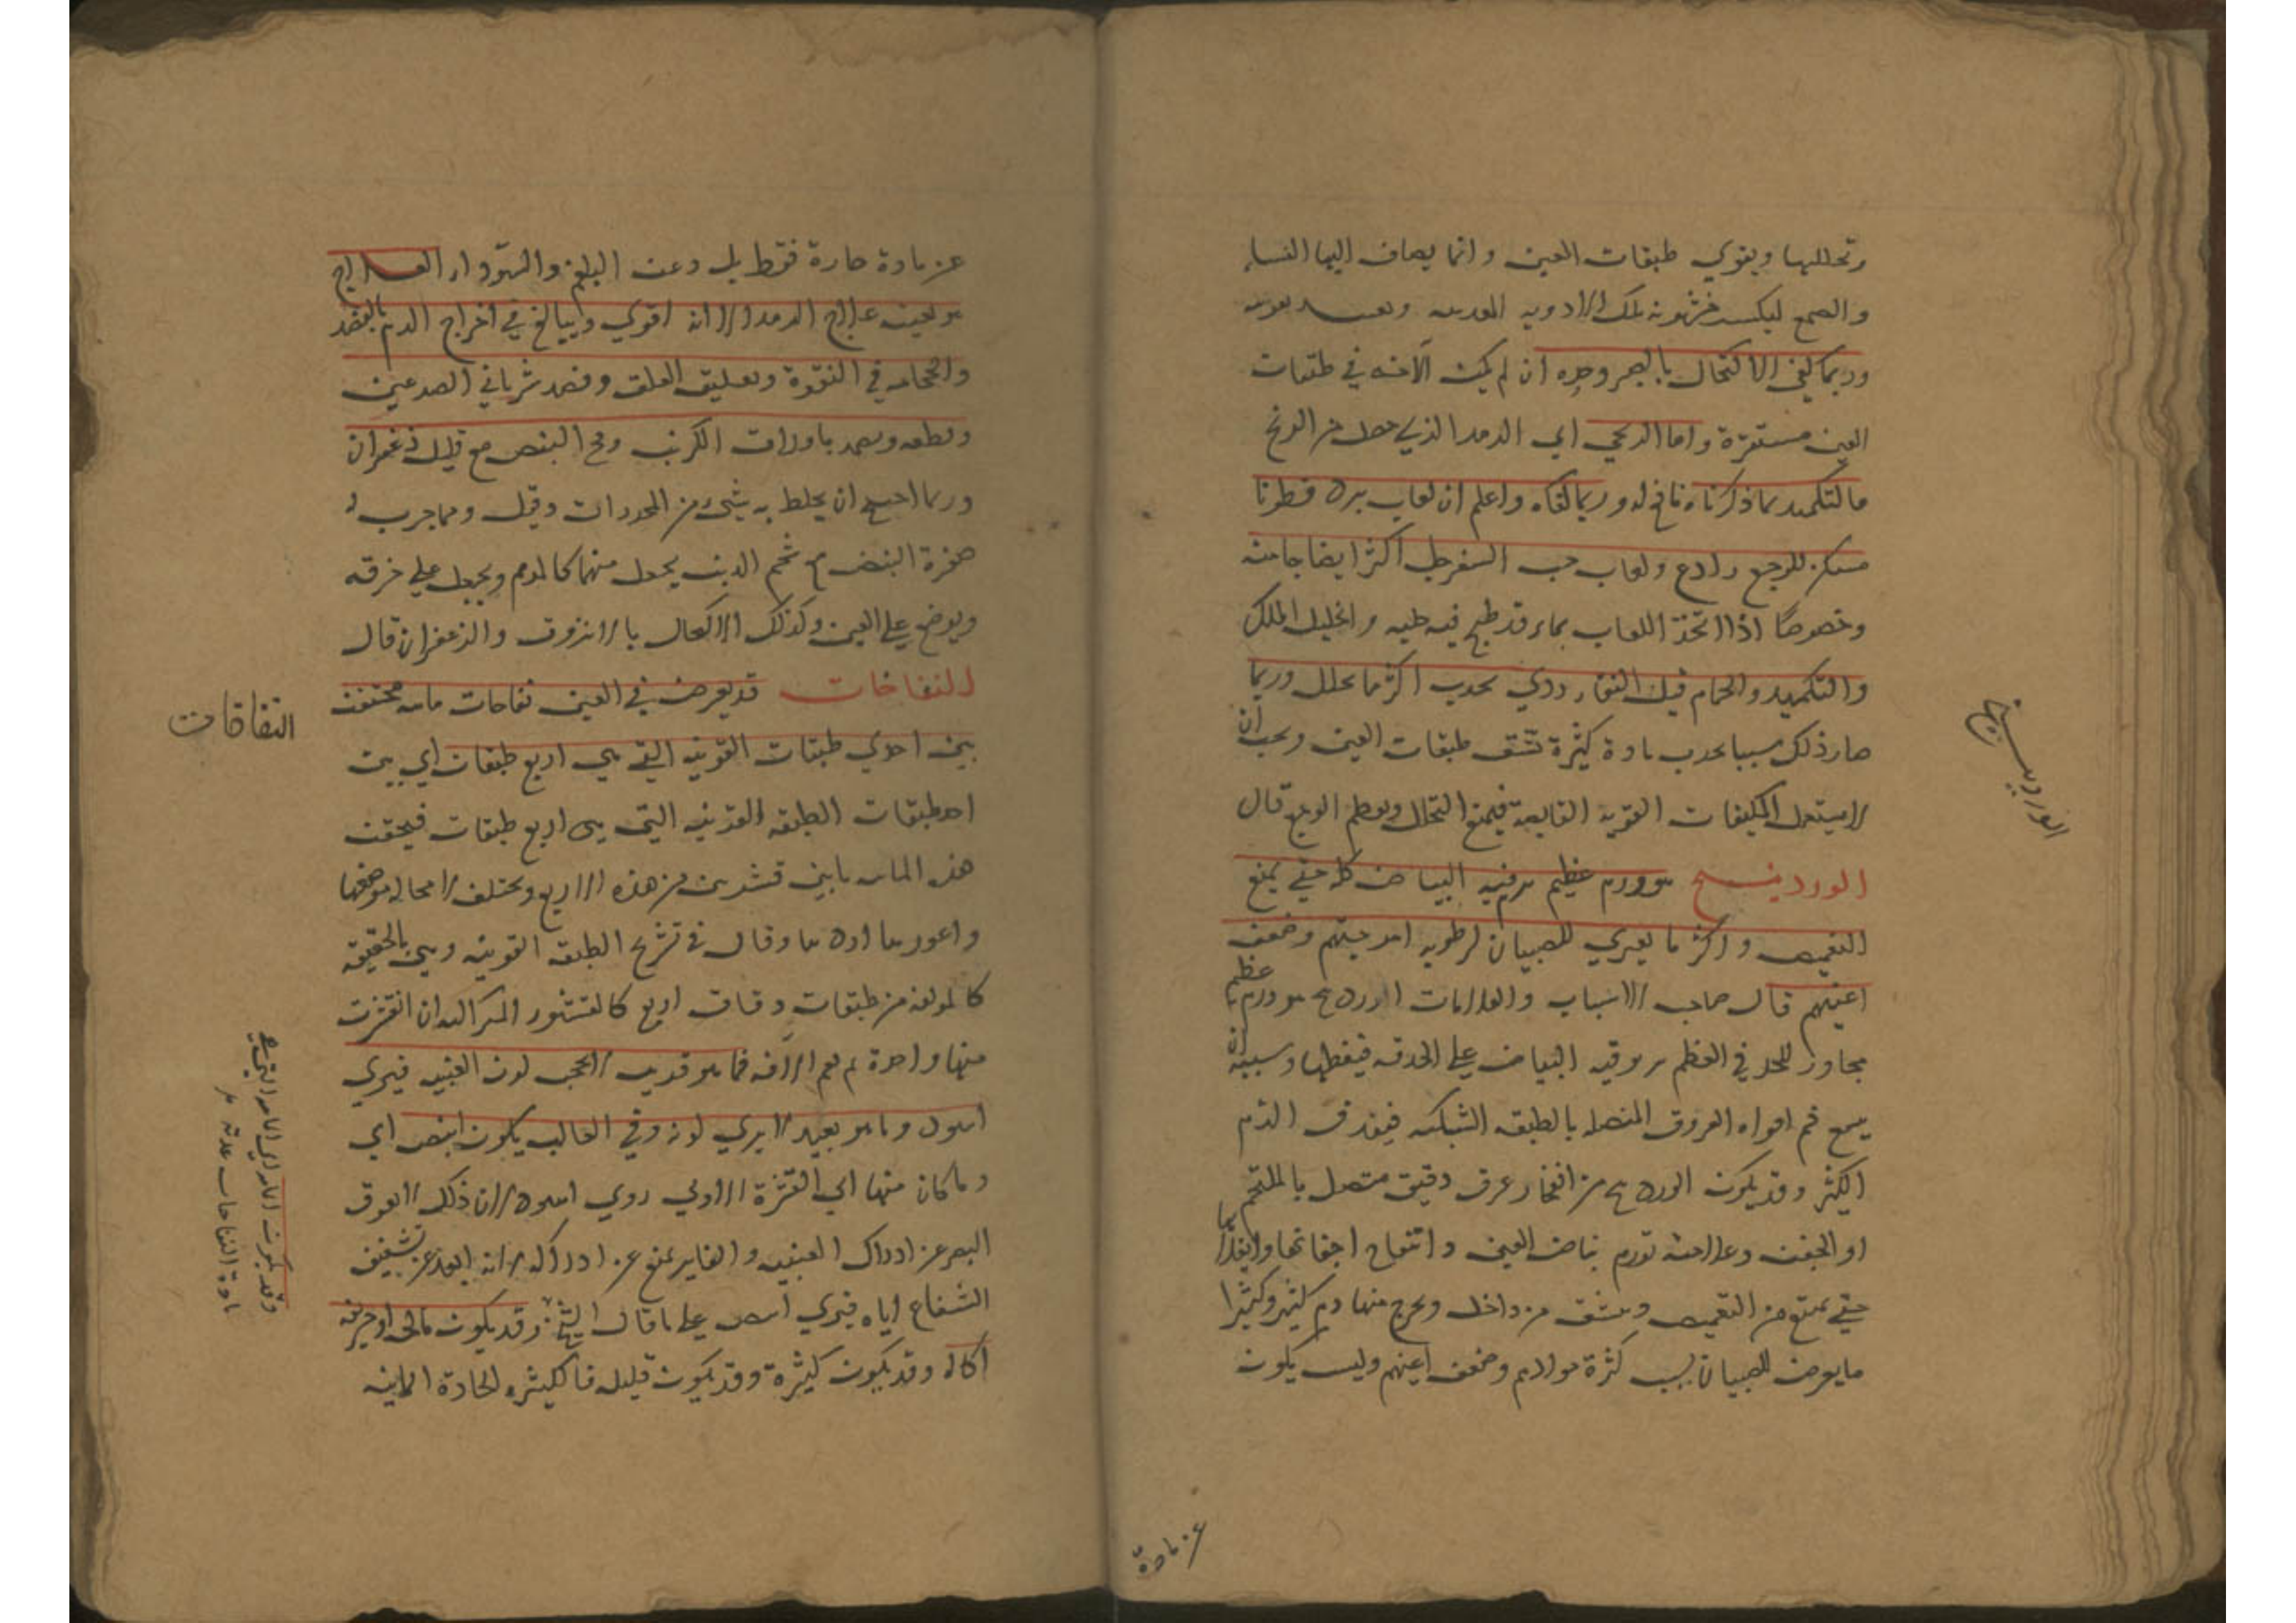 وتحللها ويقوي طبقات العين وانما يضاف اليها النشا
والصمغ ليكسر خشونة تلك الادويه المعدنيه
وربما كفى الاكتحال بالصبر وحده ان لم يكن الآفه في طبقات
العين مستقرة واما الريحي اي الرمد الذي حصل من الريح
فالتكميد بما ذكرناه نافع له وربما كفاه واعلم ان لعاب بزر قطونا
مسكن للوجع رادع ولعاب حب السفرجل اكثر ايضا جامنه
وخصوصا اذا اتخذ اللعاب بماء قد طبخ فيه حلبه واكليل الملك
والتكميد والحمام قبل النقاء ردي يجذب اكثر مما يحلل وربما
صار ذلك سببا لجذب مادة كثيرة تشق طبقات العين ويجب ان
لا يستعمل المكثفات القويه القابضة فيمنع التحلل ويعظم الوجع قال
الوردينج هو ورم عظيم يربو فيه البياض كله حتى يمنع
التغميض واكثر ما يعتري للصبيان لرطوبه امزجتهم وضعف
اعينهم قال صاحب الاسباب والعلامات الوردينج هو ورم عظيم
مجاوز للحد في العظم يربو فيه البياض على الحدقه فيغطيها وسببه ان
يتسع فم افواه العروق المتصله بالطبقه الشبكيه فيقذف الدم
الكثير وقد يكون الوردينج من انفجار عرق دقيق متصل بالملتحم
او الجفن وعلامته تورم بياض العين وانتفاخ اجفانها وانقلابها
حتى يمتنع من التغميض وينشق من داخل ويخرج منها دم كثير وكثيرا
ما يعرض للصبيان بسبب كثرة موادهم وضعف اعينهم وليس يكون
عن مادة
الوردينج
عن مادة حارة فقط بل وعن البلغم والسوداء العلاج
هو بعينه علاج الرمد الا انه اقوي ويبالغ في اخراج الدم بالفصد
والحجامه في النقرة وتعليق العلق وفصد شرياني الصدغين
وقطعه ويضمد باوراق الكرنب ومح البيض مع قليل زعفران
وربما احتيج ان يخلط به شيء من المخدرات وقيل ومما جرب له
صفرة البيض مع شحم الدب يجعل منهما كالمرهم ويجعل على خرقه
ويوضع على العين وكذلك الاكتحال بالانزروت والزعفران قال
النفاخات قد يعرض في العين نفاخات مائيه محتقنة
بين احدي طبقات القرنيه التي هي اربع طبقات اي بين
احد طبقات الطبقه القرنيه التي هي اربع طبقات فيحقن
هذه المائيه ما بين قشرين من هذه الاربع ويختلف لا محاله مواضعها
واغورها اردئها وقال في تشريح الطبقه القرنيه وهي بالحقيقه
كالمؤلفه من طبقات دقاق اربع كالقشور المتراكبه ان انقشرت
منها واحدة لم تعم الآفه فما هو قريب لا يحجب لون العنبيه فيري
اسود وما هو بعيد لا يري لونه وفي الغالب يكون ابيض اي
وما كان منها الى القشرة الاولي روي اسود لان ذلك لا يعوق
البصر عن ادراك العنبيه والغاير يمنع عن ادراكه لانه ابعد عن تشفيف
الشعاع اياه فيري ابيض على ما قال الشيخ وقد يكون مالحه او حريفه
اكاله وقد يكون كثيرة وقد يكون قليله فالكثيره
النفاقات